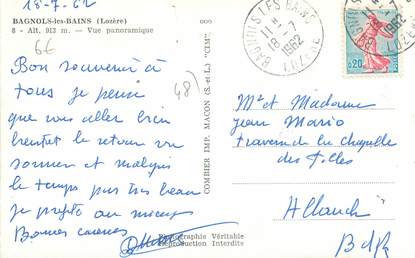 18-7-62
BAGNOLS-les-BAINS (Lozère)
8 - Alt. 913 m. - Vue panoramique
6€
48)
Bon souvenir à
tous je pense
que vous aller bien
bientot le retour on
sommes et malgré
le temps pas très beau
je profite au mieux
Bonnes
COMBIER IMP. MACON (S.-et-L.) "CIM"
Photographie Véritable
Reproduction Interdite
BAGNOLS LES BAINS
11 H
18 -7
1962
LOZERE
BAGNOLS LES BAINS
18 -7
1962
LOZERE
0,20
Mr et Madame
Jean Mario
traverse de la chapelle
des
Allauch
BdR